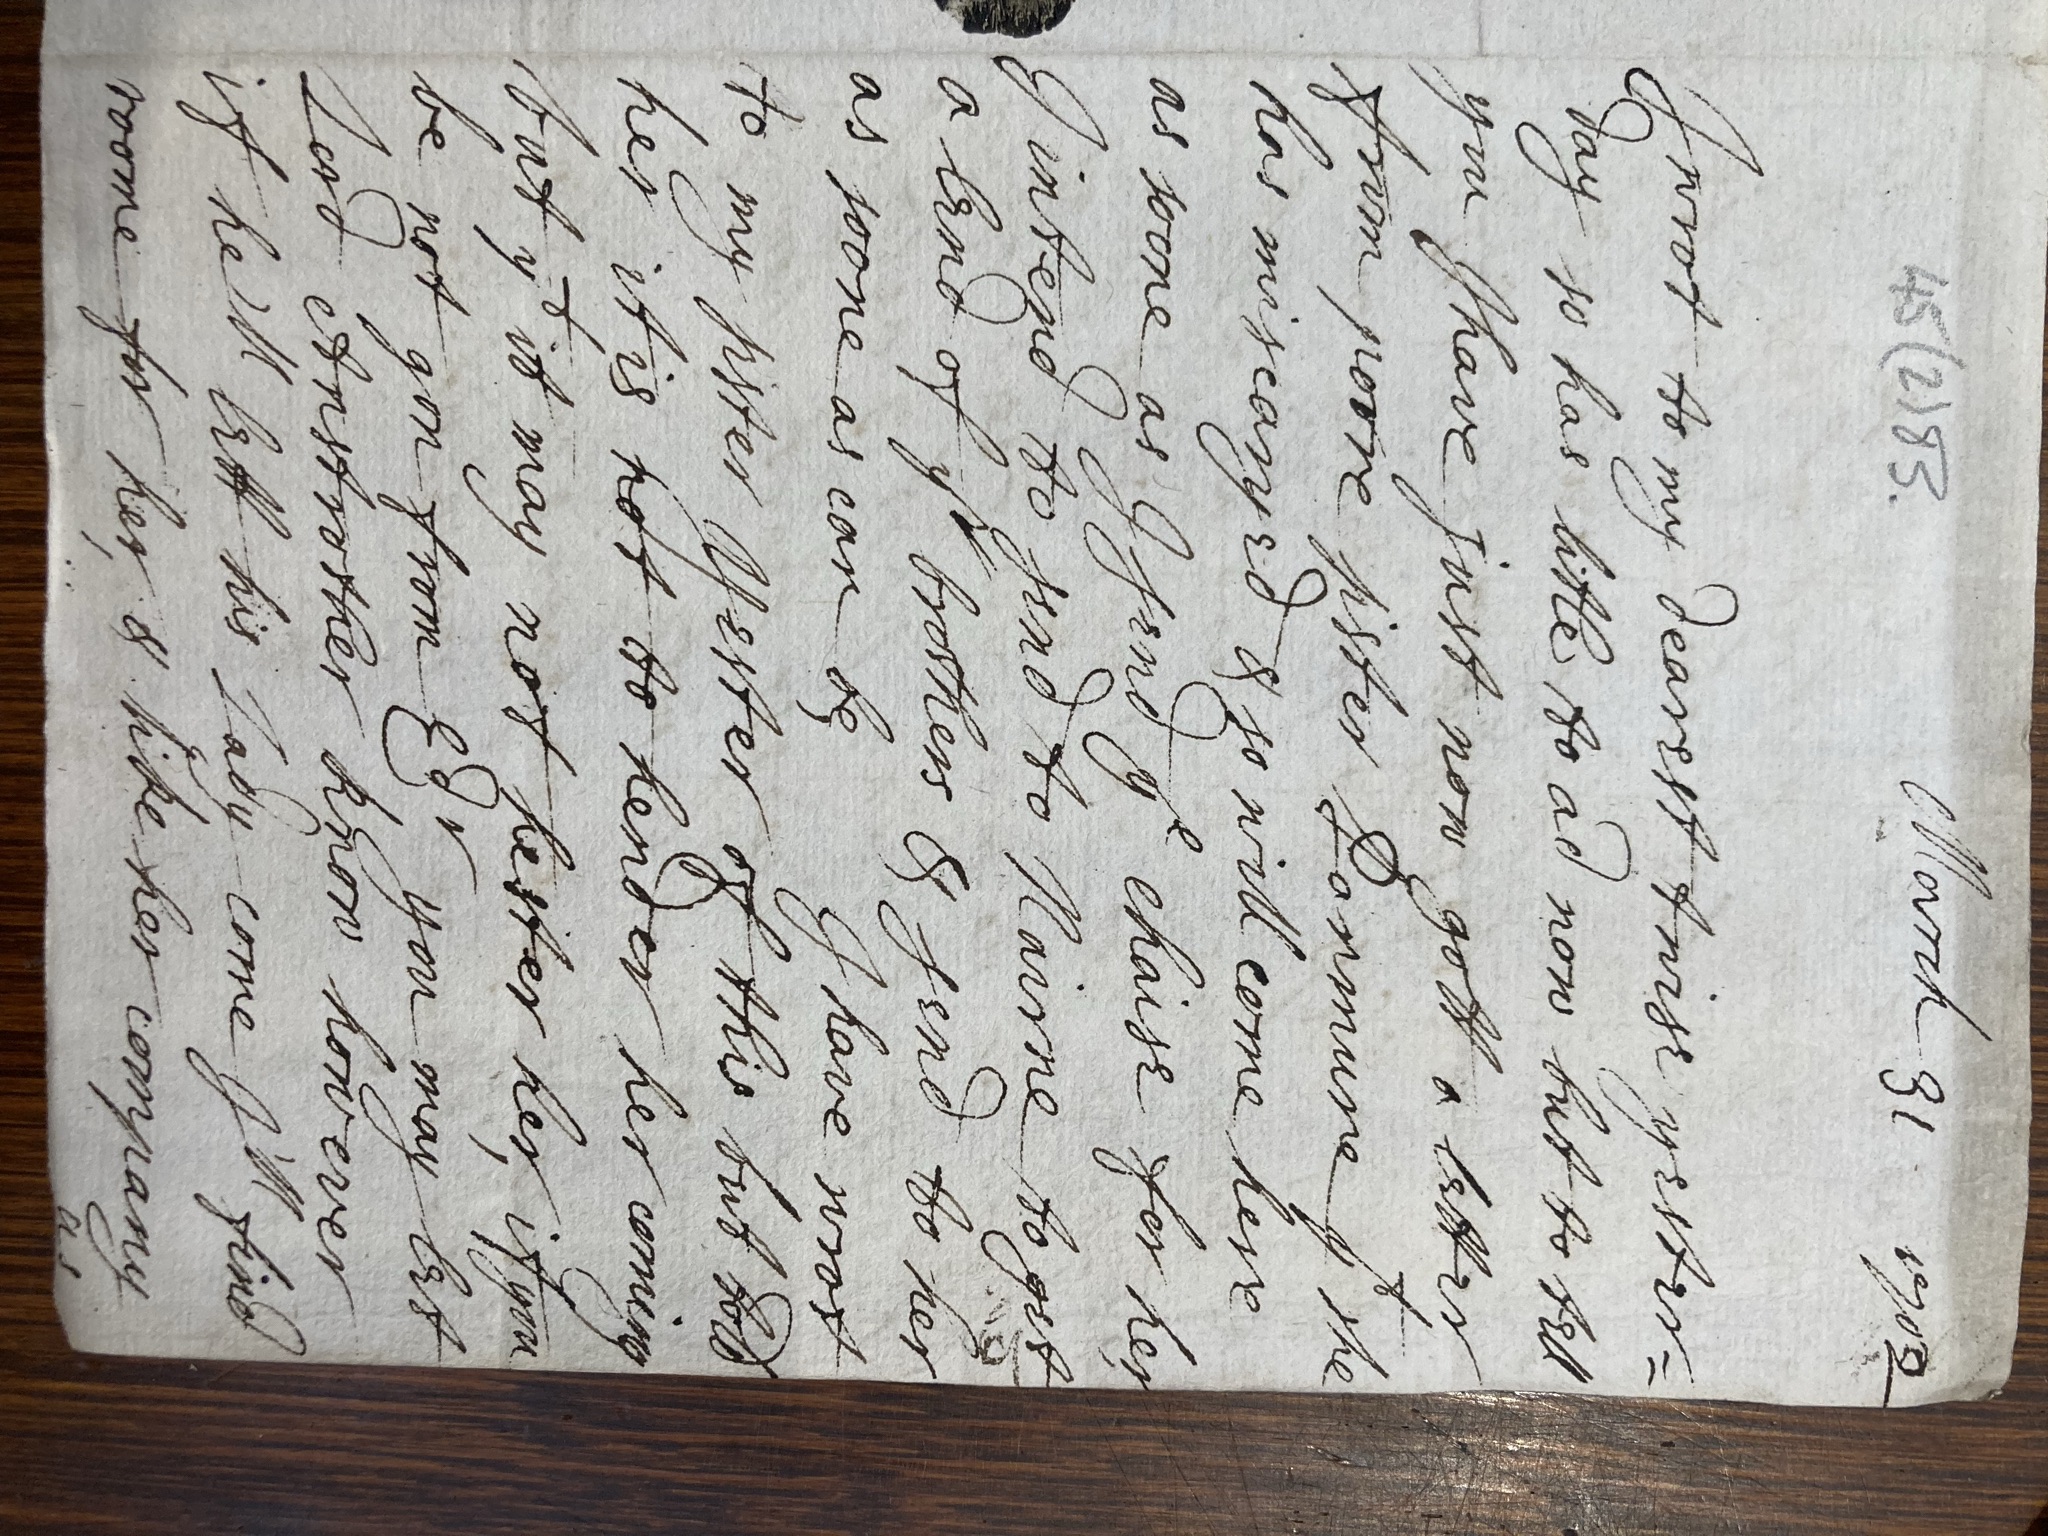 45(2)83.
March 31 1702
I wrot to my dearest twise yester=
day so has litle to ad now but to tell
you I have just now gott a letter
from poore sister Panmure yt she
has miscaryed & so will come here
as soone as I send ye chaise for her,
I intend to send to Nairne to get
a lend of yr brothers & send to her
as soone as can be, I have wrot
to my sister Yester of this but told
her it is not to hender her coming
but yt it may not hester her, if you
be not gon from Edr you may let
Lord Anstrother know however
if he'll lett his Lady come I'll find
roome for her, & like her company
as